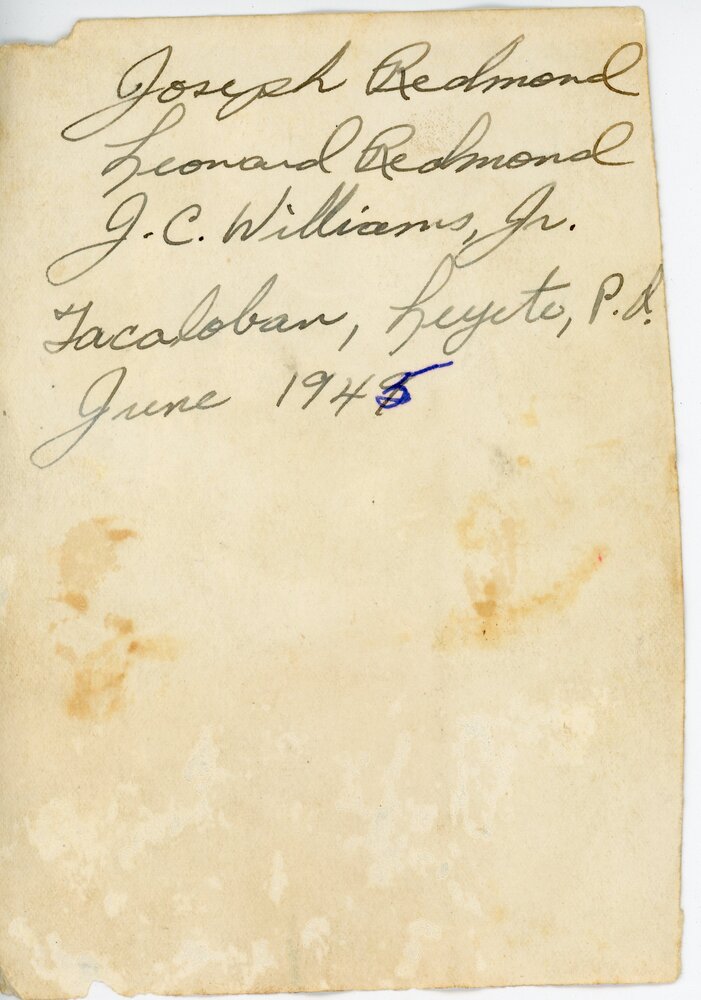 Joseph Redmond
Leonard Redmond
J. C. Williams, Jr.
Tacaloban, Leyete, P. I.
June 1945